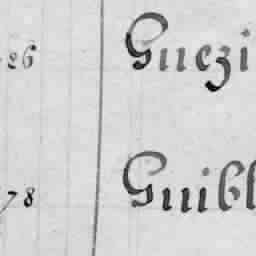 26 Guezi
78 Guibl